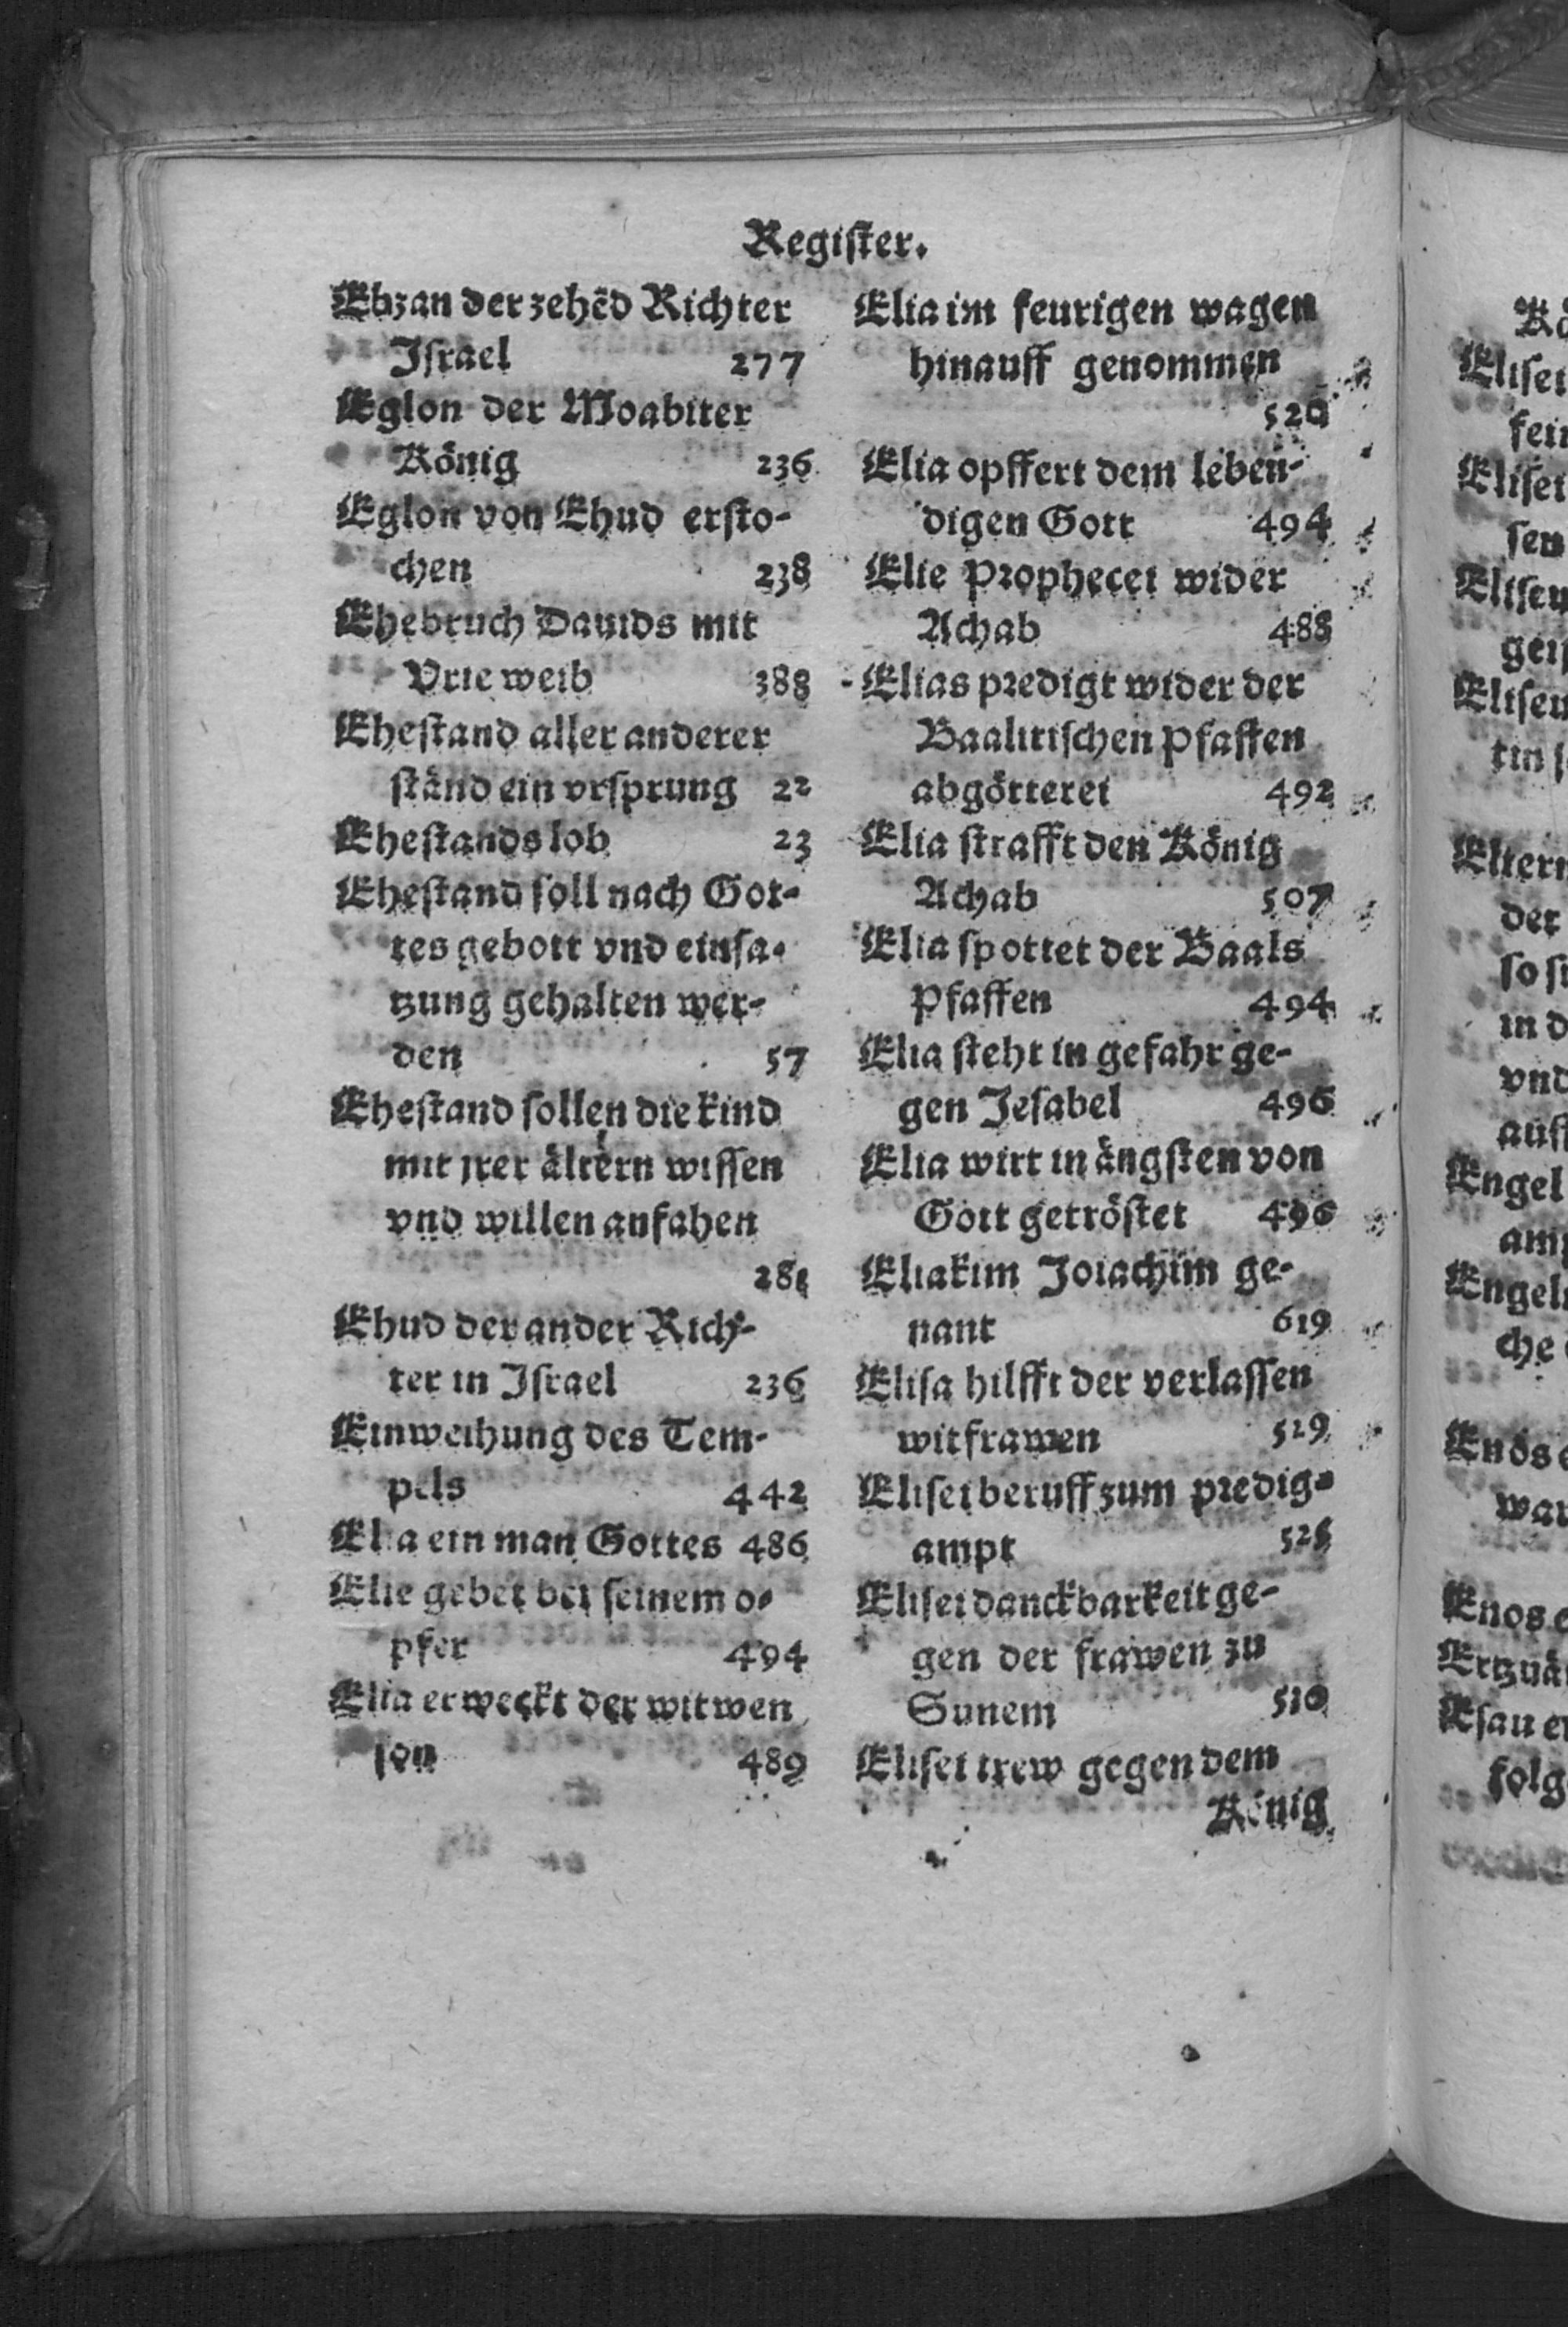 Register.
Ebzan der zehēd Richter
Iſrael 277
Eglon der Moabiter
König 236
Eglon von Ehud erſto-
chen 238
Ehebruch Dauids mit
Vrie weib 388
Eheſtand aller anderer
ſtänd ein vrſprung 22
Eheſtands lob 23
Eheſtand ſoll nach Got-
tes gebott vnd einſa-
tzung gehalten wer-
den 57
Eheſtand ſollen die kind
mit jrer ältern wiſſen
vnd willen anfahen
281
Ehud der ander Rich-
ter in Iſrael 236
Einweihung des Tem-
pels 442
Elia ein man Gottes 486
Elie gebet bei ſeinem o-
pfer 494
Elia erweckt der witwen
ſon 489
Elia im feurigen wagen
hinauff genommen
520
Elia opffert dem leben-
digen Gott 494
Elie Prophecei wider
Achab 488
Elias predigt wider der
Baalitiſchen Pfaffen
abgötterei 492
Elia ſtrafft den König
Achab 507
Elia ſpottet der Baals
Pfaffen 494
Elia ſteht in gefahr ge-
gen Jeſabel 496
Elia wirt in ängſten von
Gott getröſtet 496
Eliakim Joiachim ge-
nant 619
Eliſa hilfft der verlaſſen
witfrawen 529
Eliſei beruff zum predig-
ampt
Eliſei danckbarkeit ge-
gen der frawen zu
Sunem
Eliſei trew gegen dem
König
Eliſei
Eliſei
ſen
Eliſeu
Eliſeu
Eltern
der
ſo
in d
vnd
Engel
Engel
che
Enos
Eſau
folg